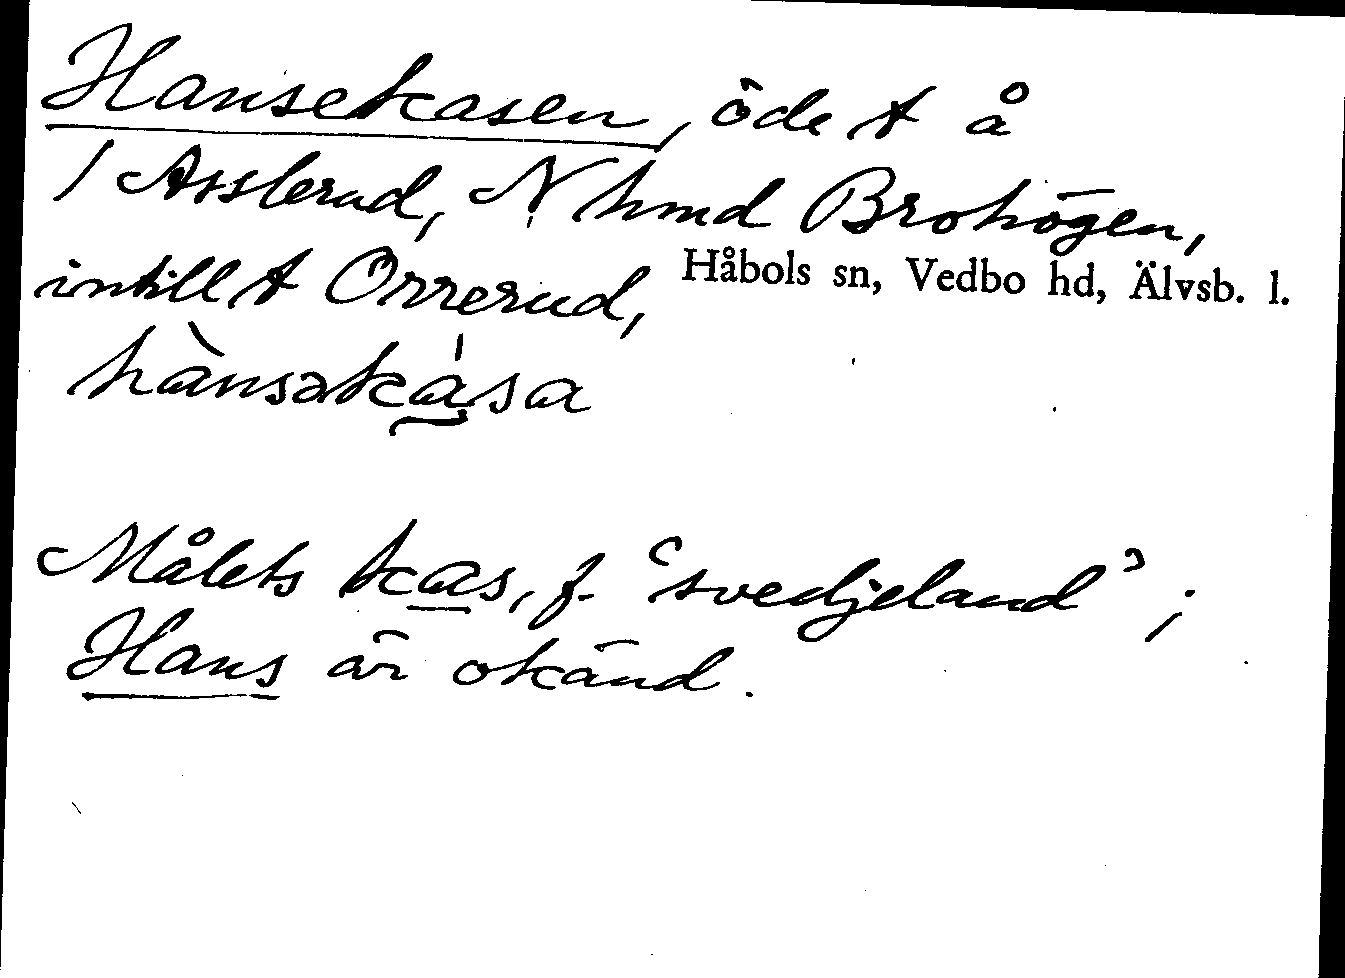 Hansekasen, öde t å
1 Asslerud, N hmd Brohögen,
intill t Orrerud, Håbols sn, Vedbo hd, Älvsb. l.
hànsəkása
Målets kas, f. 'svedjeland';
Hans är okänd.